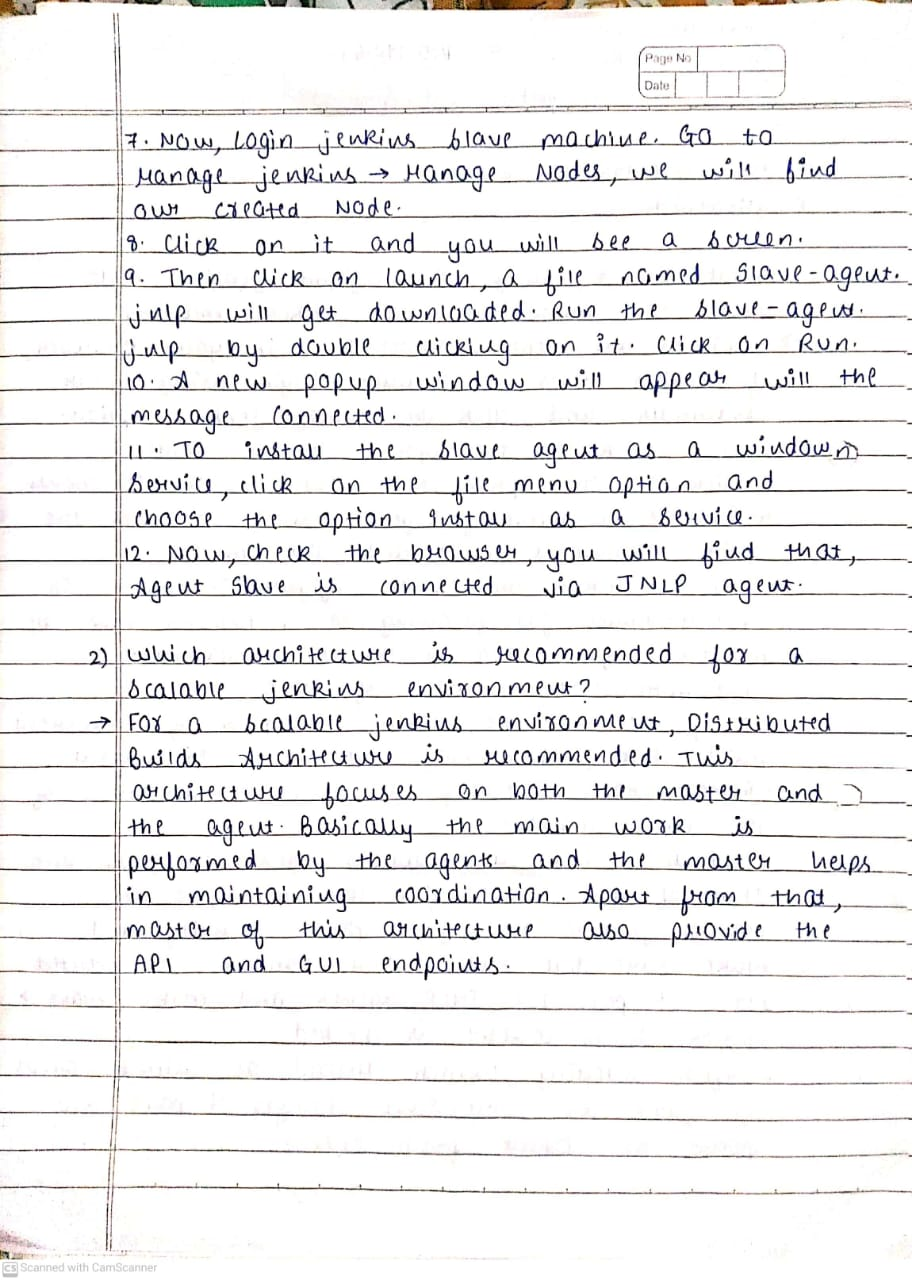 Page No
Date
7. Now, Login jenkins slave machine. Go to
Manage jenkins → Manage Nodes, we will find
our created Node.
8. Click on it and you will see a screen.
9. Then click on launch, a file named Slave-agent.
jnlp will get downloaded. Run the slave-agent.
jnlp by double clicking on it. Click on Run.
10. A new popup window will appear will the
message connected.
11. To install the slave agent as a window
Service, click on the file menu option and
choose the option install as a service.
12. Now, check the browser, you will find that,
Agent Slave is connected via JNLP agent.
2) Which architecture is recommended for a
scalable jenkins environment?
→ For a scalable jenkins environment, Distributed
Builds Architecture is recommended. This
architecture focuses on both the master and
the agent. Basically the main work is
performed by the agents and the master helps
in maintaining coordination. Apart from that,
master of this architecture also provide the
API and GUI endpoints.
CS Scanned with CamScanner